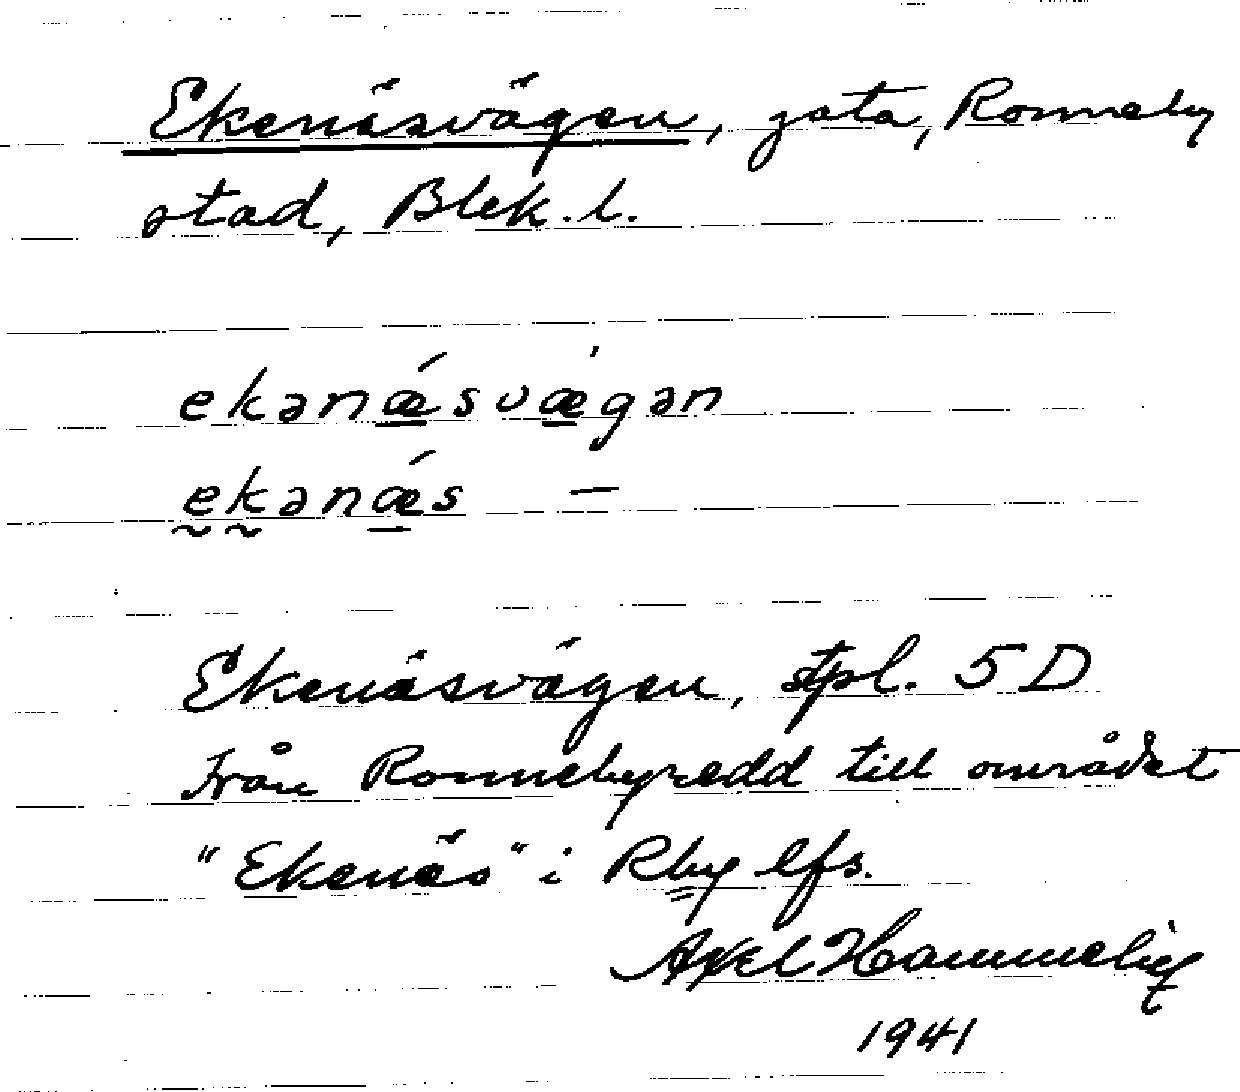 Ekenäsvägen, gata, Ronneby
stad, Blek. l.
ekənǽsvǽgən
ekənǽs —
Ekenäsvägen, stpl. 5 D
Från Ronnebyredd till området
"Ekenäs" i Rby lfs.
Axel Hammelig
1941